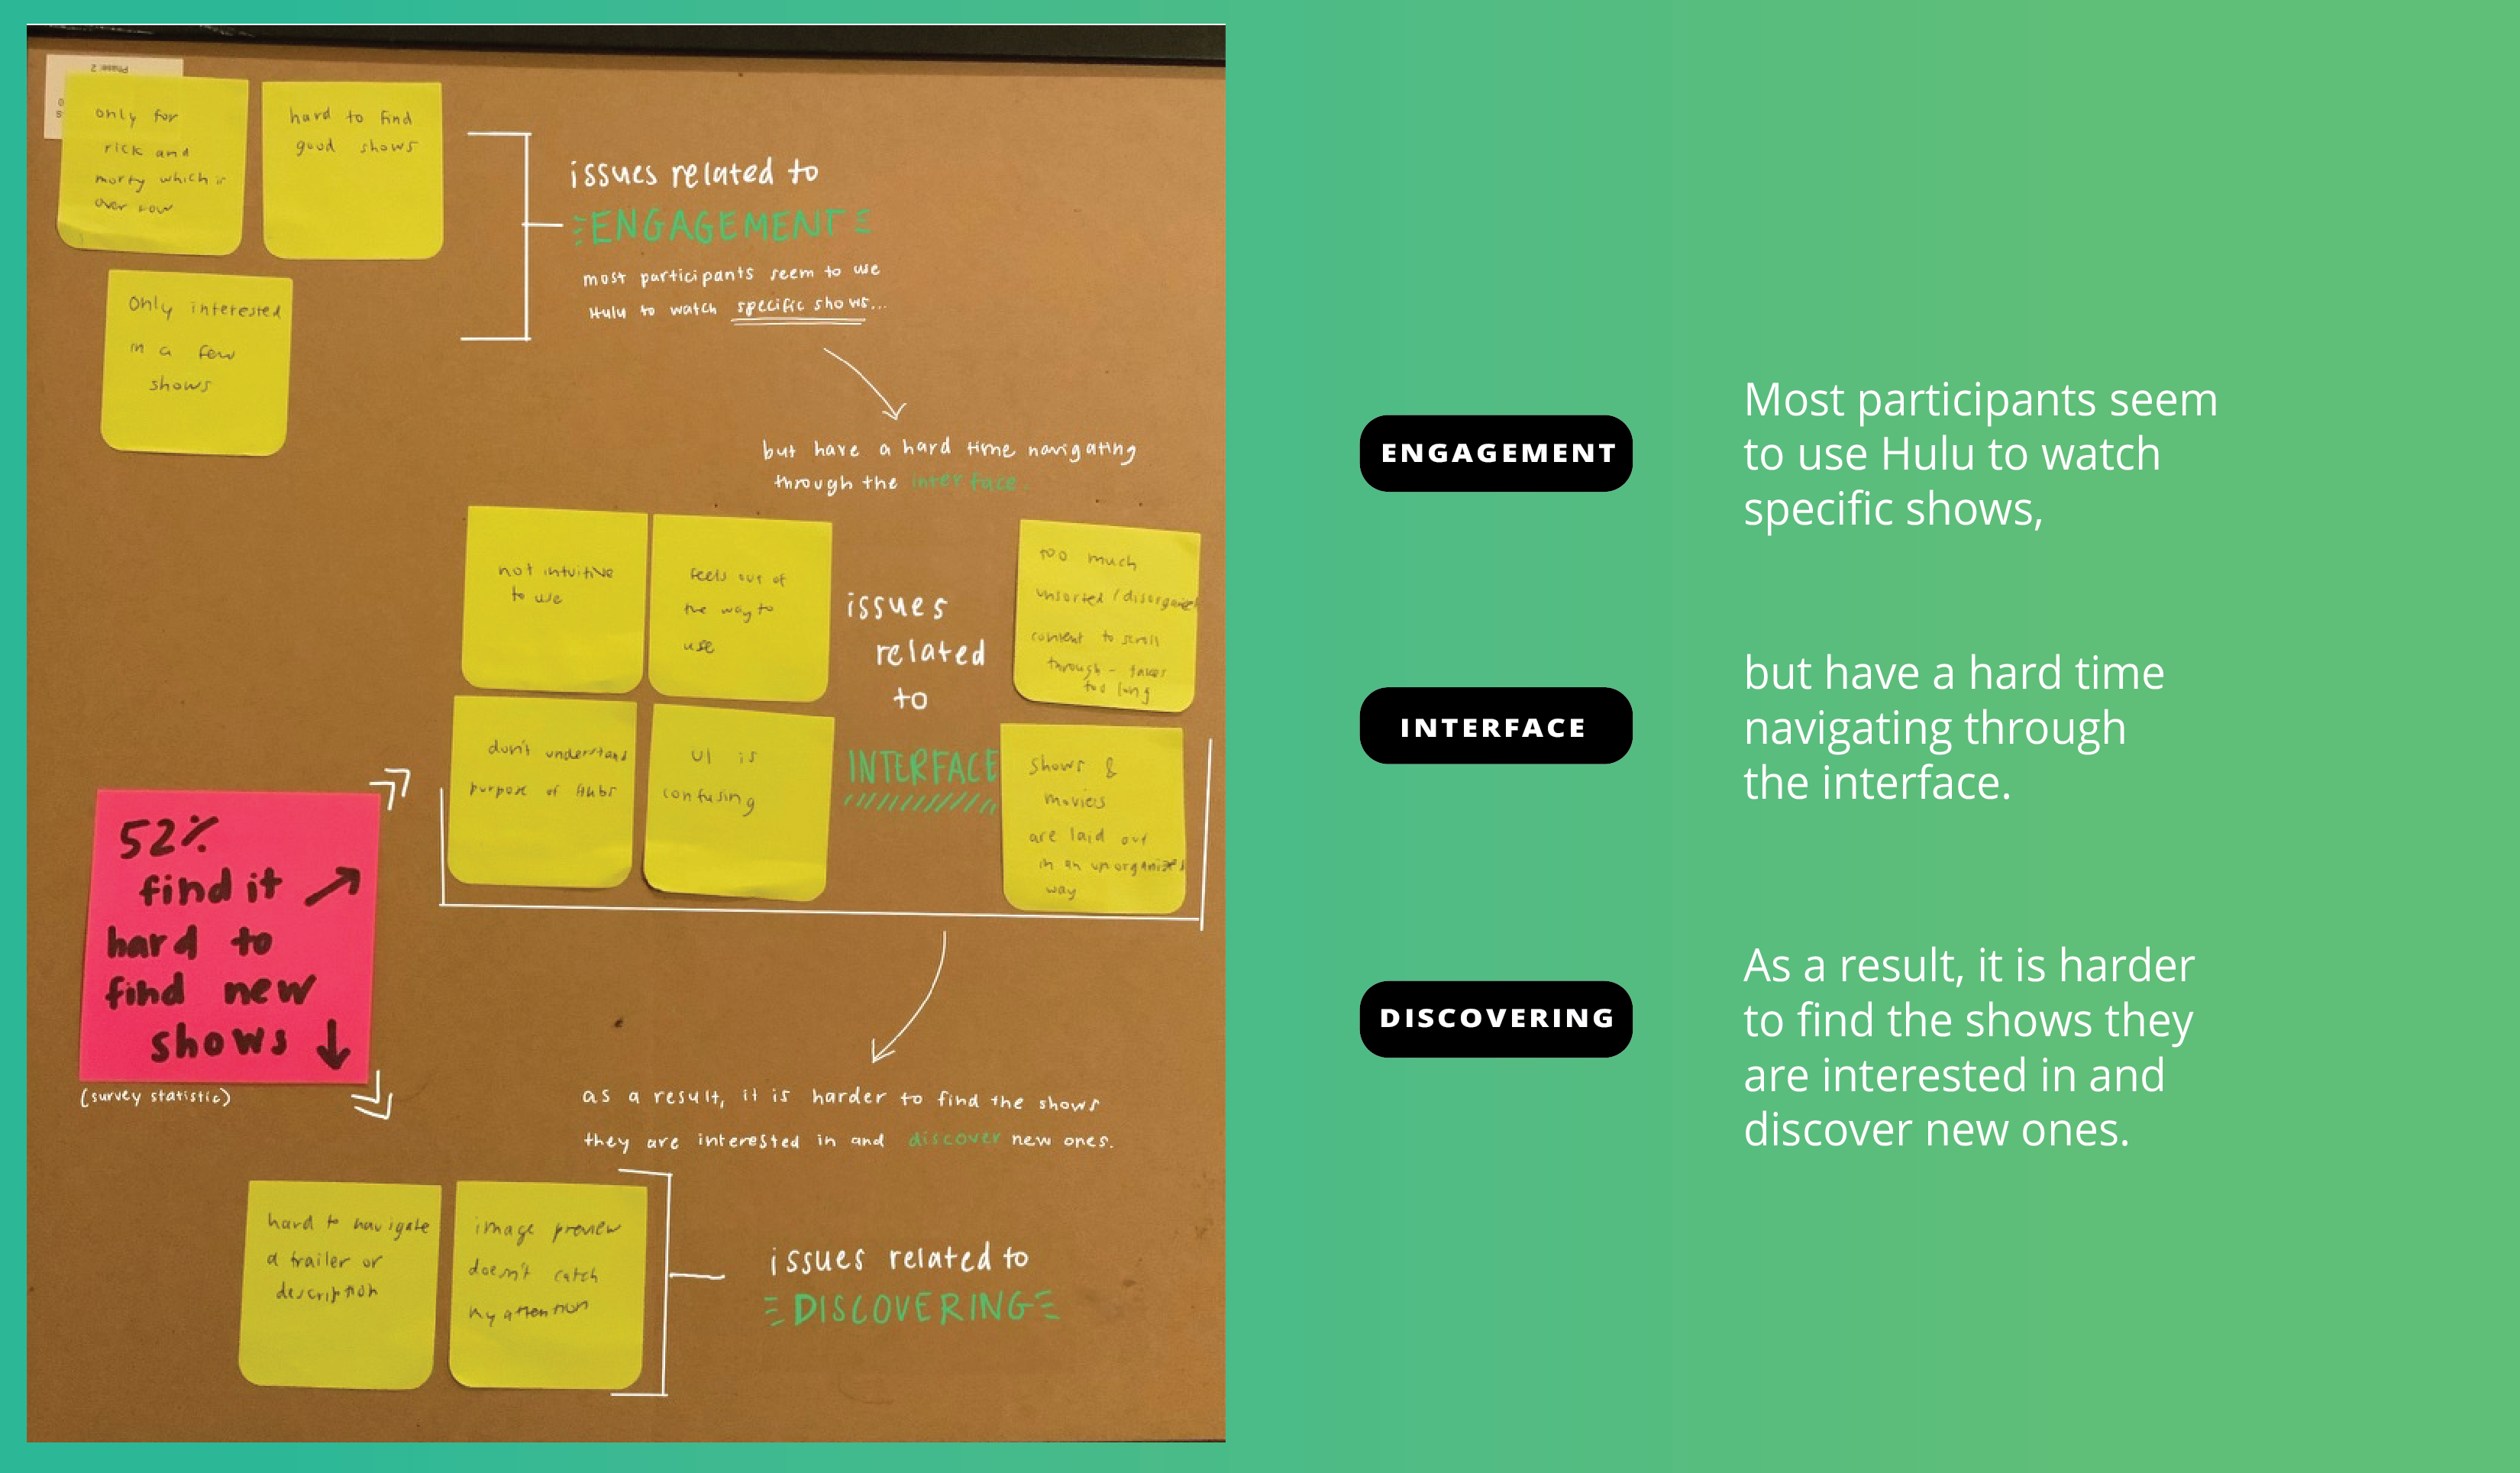 Phase 2
only for
rick and
morty which is
over now
hard to find
good shows
Only interested
in a few
shows
issues related to
ENGAGEMENT
most participants seem to use
Hulu to watch specific shows...
but have a hard time navigating
through the interface.
not intuitive
to use
feels out of
the way to
use
don't understand
purpose of Hubs
UI is
confusing
issues
related
to
INTERFACE
too much
unsorted / disorganized
content to scroll
through - takes
too long
shows &
movies
are laid out
in an unorganized
way
52%
find it
hard to
find new
shows
(survey statistic)
as a result, it is harder to find the shows
they are interested in and discover new ones.
hard to navigate
a trailer or
description
image preview
doesn't catch
my attention
issues related to
DISCOVERING
ENGAGEMENT
Most participants seem
to use Hulu to watch
specific shows,
INTERFACE
but have a hard time
navigating through
the interface.
DISCOVERING
As a result, it is harder
to find the shows they
are interested in and
discover new ones.